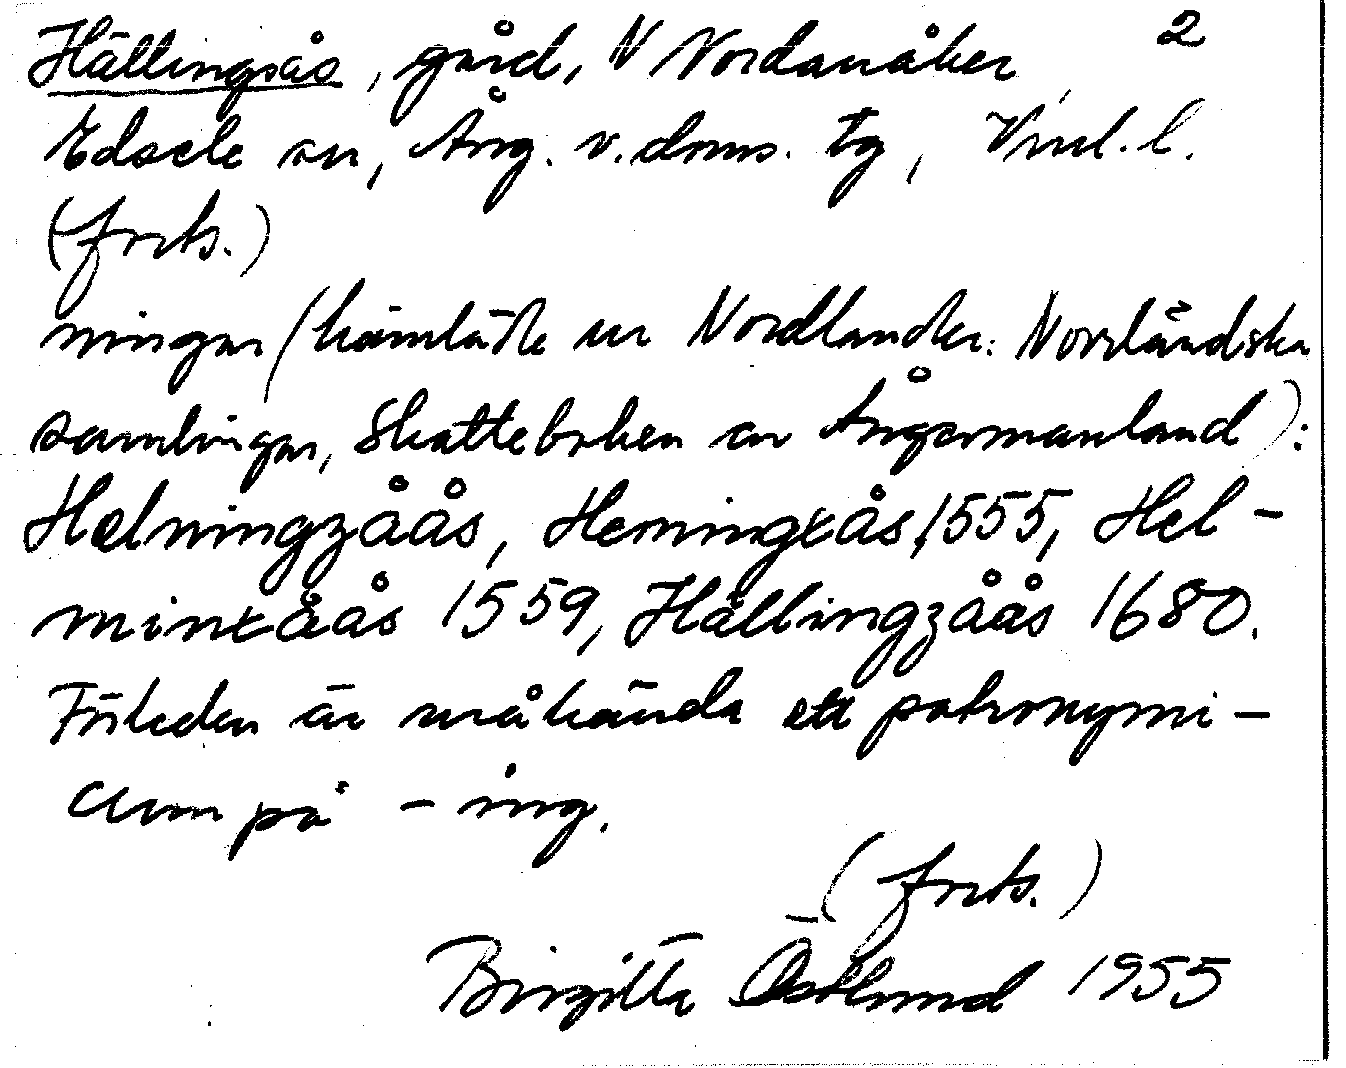 Hällingsås, gård, N Nordanåker 2
Edsele sn, Ång. v. doms. tg, Vnl. l.
(forts.)
ningar (hämtade ur Nordlander: Norrländska
samlingar, Skatteboken av Ångermanland):
Helningzåås, Hemingxås 1555, Hel-
minxåås 1559, Hållingzåås 1680.
Förleden är måhända ett patronymi-
cum på -ing.
(forts.)
Birgitta Östlund 1955